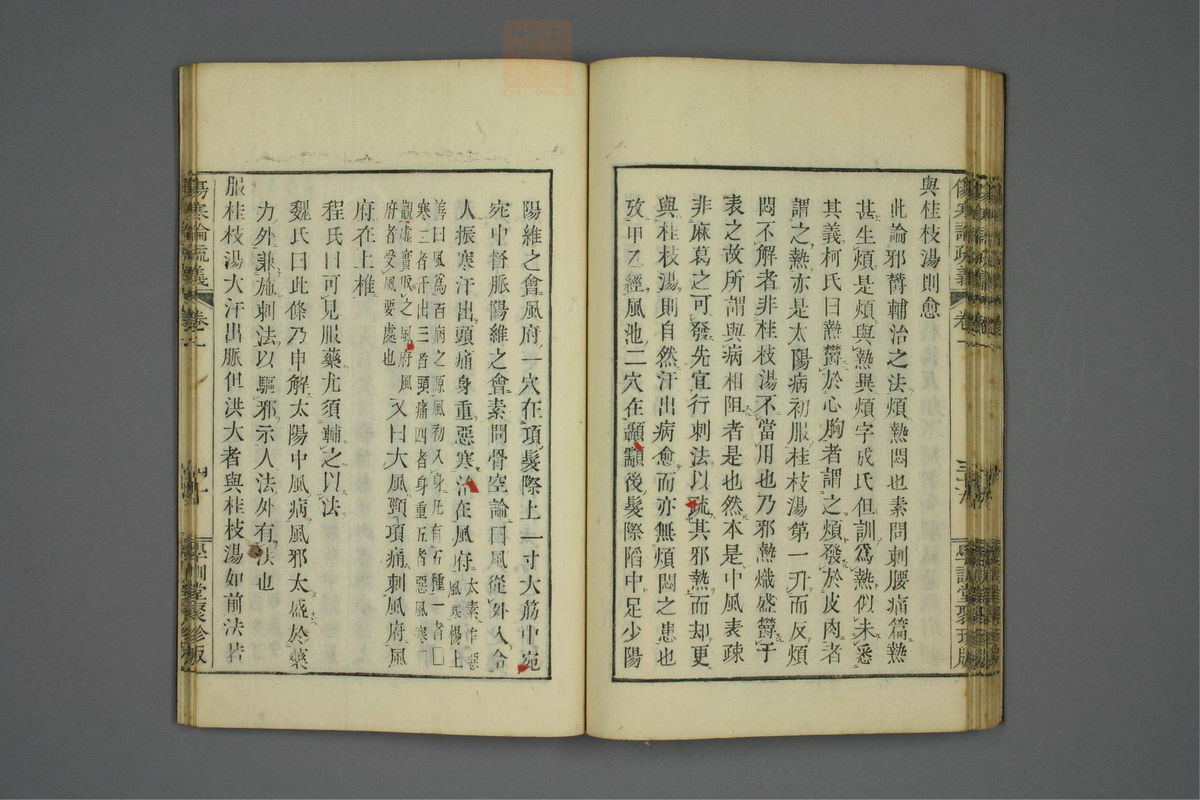 與桂枝湯則愈
此論邪鬱輔治之法煩熱悶也素問刺腰痛篇熱
甚生煩是煩與熱異煩字成氏但訓爲熱似未悉
其義柯氏曰熱鬱於心胸者謂之煩發於皮肉者
謂之熱亦是太陽病初服桂枝湯第一升而反煩
悶不解者非桂枝湯不當用也乃邪熱熾盛鬱于
表之故所謂與病相阻者是也然本是中風表疎
非麻葛之可發先宜行刺法以疏其邪熱而却更
與桂枝湯則自然汗出病愈而亦無煩悶之患也
攷甲乙經風池二穴在顳顬後髮際陷中足少陽
傷寒論疏義
卷一
學訓堂聚珍版
陽維之會風府一穴在項髮際上一寸大筋中宛
宛中督脈陽維之會素問骨空論曰風從外入令
人振寒汗出頭痛身重惡寒治在風府太素作惡風寒楊上
善曰風爲百病之源風初入身凡有五種一者
寒二者汗出三者頭痛四者身重五者惡風寒
觀虛實取之風府風
府者受風要處也
又曰大風頸項痛刺風府風
府在上椎
程氏曰可見服藥尤須輔之以法
魏氏曰此條乃申解太陽中風病風邪太盛於藥
力外兼施刺法以驅邪示人法外有法也
服桂枝湯大汗出脈但洪大者與桂枝湯如前法若
傷寒論疏義
卷一
學訓堂聚珍版